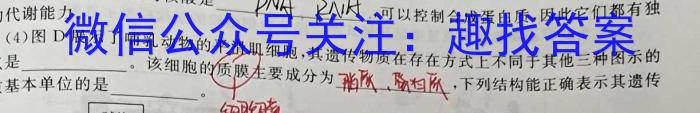 的代谢能力 DNA RNA 可以控制合成蛋白质,因此它们都有独
微信公众号关注:趣找答案
(4)图D展示了哺乳动物的平滑肌细胞,其遗传物质在存在方式上不同于其他三种图示的
是________。该细胞的质膜主要成分为 脂质、蛋白质,下列结构能正确表示其遗传
基本单位的是________。
细胞膜